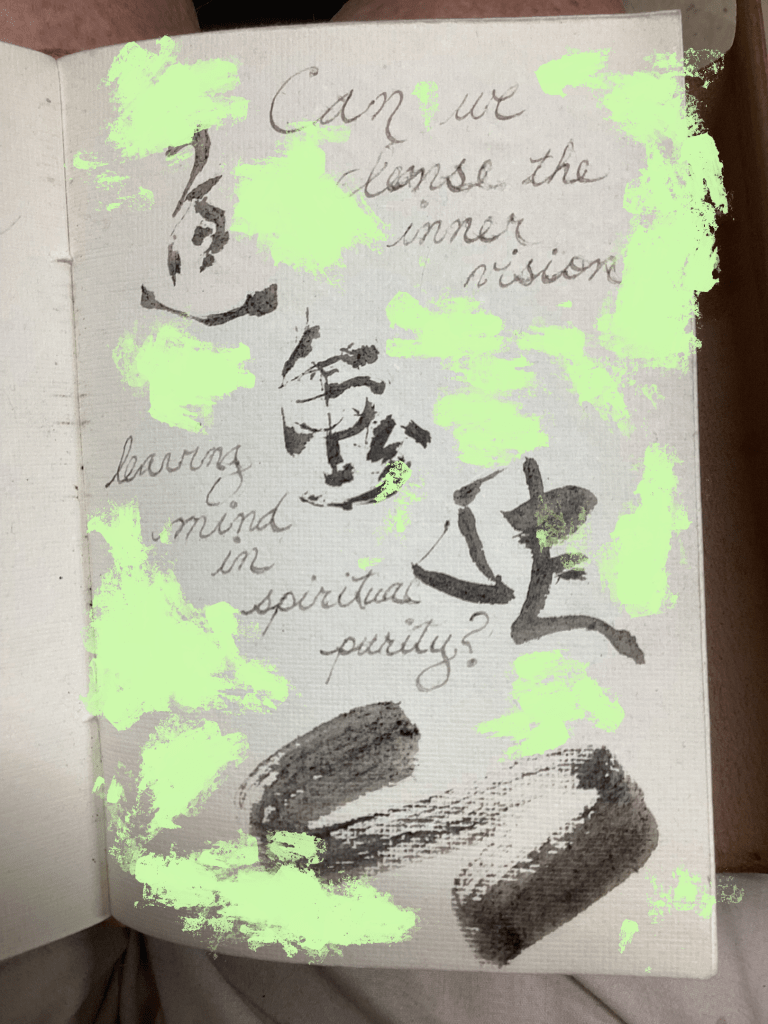 Can we
cleanse the
inner
vision
道
leaving
mind
in
spiritual
purity?